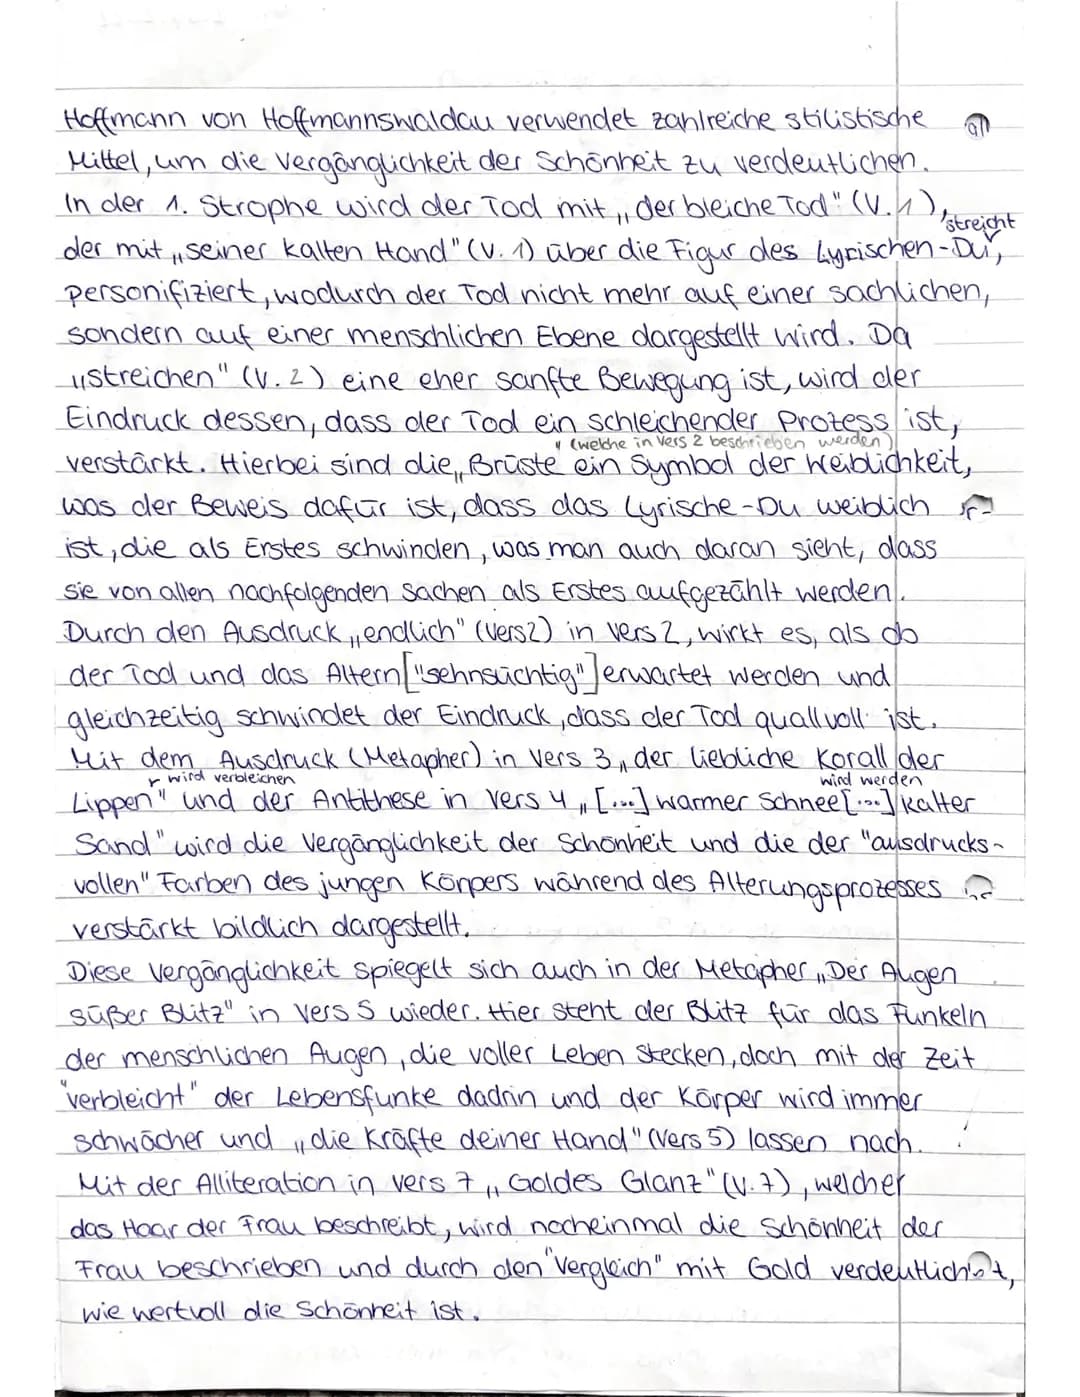 Hoffmann von Hoffmannswaldau verwendet zahlreiche stilistische
Mittel, um die Vergänglichkeit der Schönheit zu verdeutlichen.
In der 1. Strophe wird der Tod mit „der bleiche Tod" (V. 1),
streicht
der mit „seiner kalten Hand" (V. 1) über die Figur des Lyrischen-Du,
personifiziert, wodurch der Tod nicht mehr auf einer sachlichen,
sondern auf einer menschlichen Ebene dargestellt wird. Da
„streichen" (V. 2) eine eher sanfte Bewegung ist, wird der
Eindruck dessen, dass der Tod ein schleichender Prozess ist,
" (welche in Vers 2 beschrieben werden)
verstärkt. Hierbei sind die „Brüste ein Symbol der Weiblichkeit,
was der Beweis dafür ist, dass das Lyrische-Du weiblich
ist, die als Erstes schwinden, was man auch daran sieht, dass
sie von allen nachfolgenden Sachen als Erstes aufgezählt werden.
Durch den Ausdruck „endlich" (Vers 2) in Vers 2, wirkt es, als ob
der Tod und das Altern ["sehnsüchtig"] erwartet werden und
gleichzeitig schwindet der Eindruck, dass der Tod quallvoll ist.
Mit dem Ausdruck (Metapher) in Vers 3 „der liebliche Korall der
wird verbleichen
wird werden
Lippen" und der Antithese in Vers 4 „[...] warmer Schnee [...] kalter
Sand" wird die Vergänglichkeit der Schönheit und die der "ausdrucks-
vollen" Farben des jungen Körpers während des Alterungsprozesses
verstärkt bildlich dargestellt.
Diese Vergänglichkeit spiegelt sich auch in der Metapher „Der Augen
süßer Blitz" in Vers 5 wieder. Hier steht der Blitz für das Funkeln
der menschlichen Augen, die voller Leben stecken, doch mit der Zeit
"verbleicht" der Lebensfunke dadrin und der Körper wird immer
schwächer und „die Kräfte deiner Hand" (Vers 5) lassen nach.
Mit der Alliteration in Vers 7 „Goldes Glanz" (V. 7), welcher
das Haar der Frau beschreibt, wird nocheinmal die Schönheit der
Frau beschrieben und durch den "Vergleich" mit Gold verdeutlicht,
wie wertvoll die Schönheit ist.